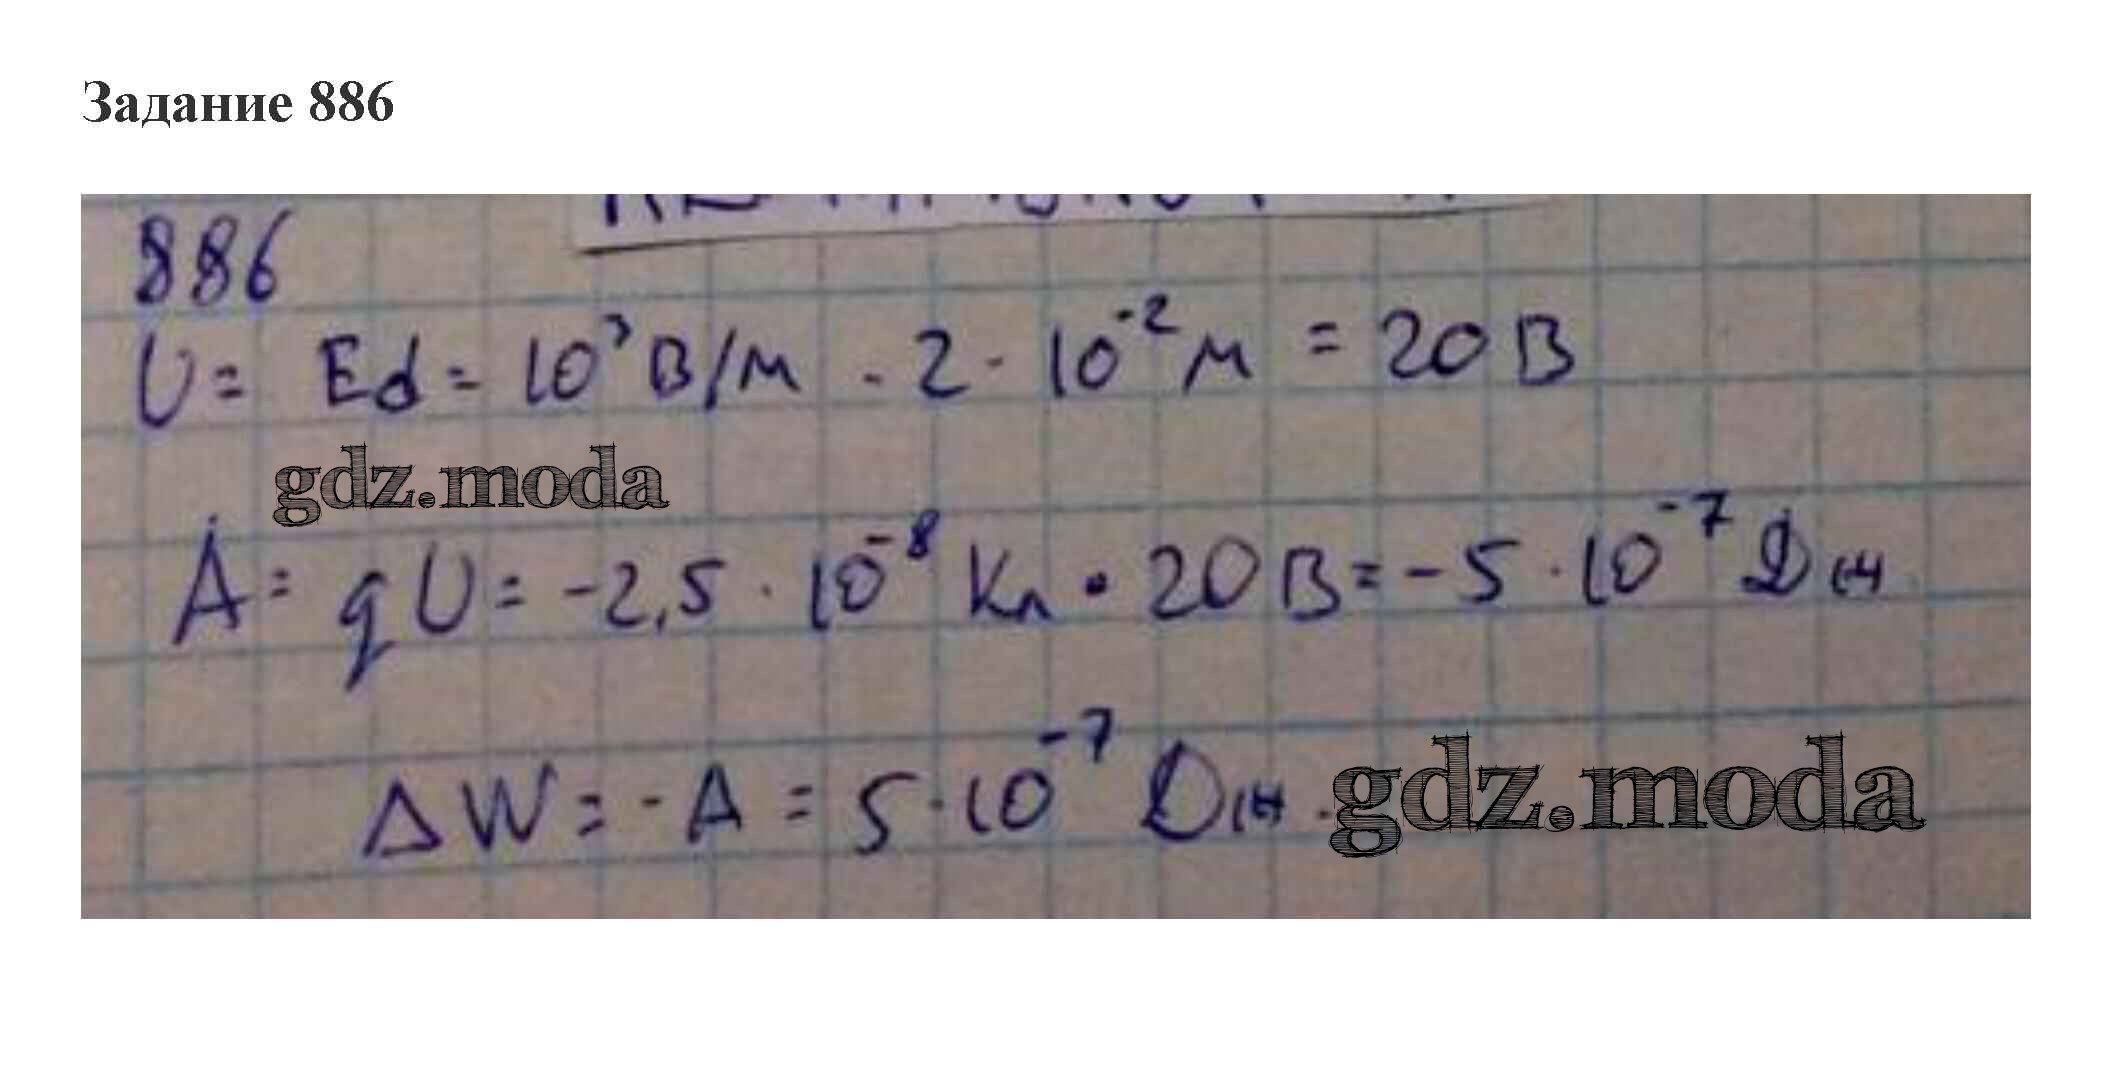 Задание 886
886
U = Ed = 10³ В/м · 2 · 10⁻² м = 20 В
gdz.moda
A = qU = -2,5 · 10⁻⁸ Кл · 20 В = -5 · 10⁻⁷ Дж
ΔW = -A = 5 · 10⁻⁷ Дж.
gdz.moda